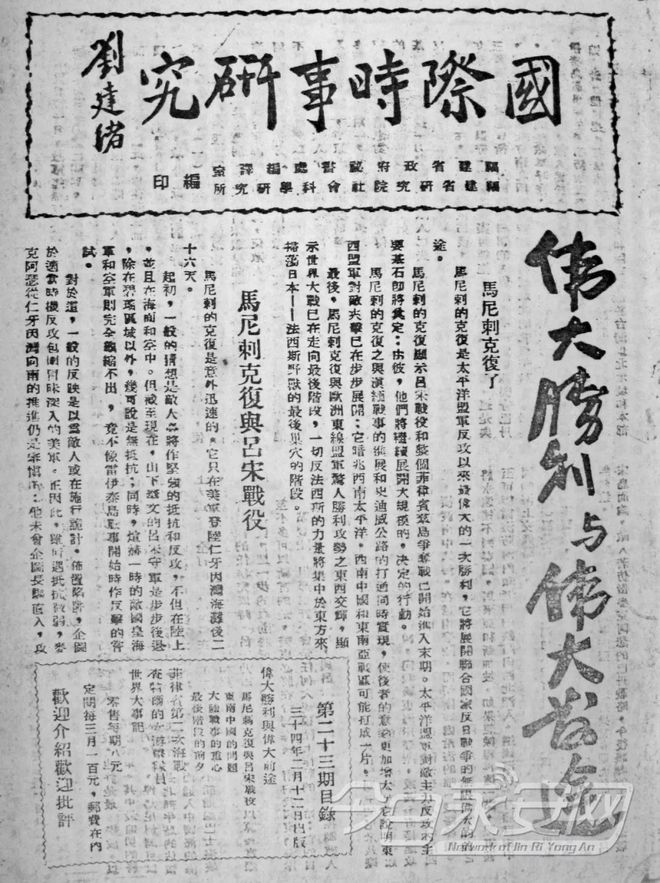 國際時事研究
劉建緒
福建省政府秘書處編譯室
福建省研究院社會科學研究所
編印
偉大勝利与偉大前途
馬尼剌克復了
馬尼剌的克復是太平洋盟軍反攻以來最偉大的一次勝利，它將展開聯合國家反日戰爭的
途。
馬尼剌的克復顯示呂宋戰役和整個菲律賓羣島爭奪戰已開始進入末期。太平洋盟軍對敵主力反攻的主
要基石即將奠定；由彼，他們將繼續展開大規模的，決定的行動。
馬尼剌的克復之與滇緬戰事的進展和史迪威公路的打通同時實現，使後者的意義更加增大，它說明東
西盟軍對敵夾擊已在步步展開；它暗兆西南太平洋，西南中國和東南亞戰區可能打成一片。
最後，馬尼剌克復與歐洲東線盟軍驚人勝利攻勢之東西交輝，顯
示世界大戰已在走向最後階段，一切反法西斯的力量將集中於東方來，
掃蕩日本——法西斯野獸的最後巢穴的階段。
馬尼剌克復與呂宋戰役
馬尼剌的克復是意外迅速的。它只在美軍登陸仁牙因灣海灘後二
十六天。
起初，一般的猜想是敵人必將作堅強的抵抗和反攻，不但在陸上
，並且在海面和空中。但截至現在，山下奉文的呂宋守軍是步步後退
，除在碧瑤區域以外，幾可說是無抵抗；同時，煊赫一時的敵國皇海
軍和空軍則完全龜縮不出，竟不像雷伊泰島戰事開始時作反擊的嘗
試。
對於這，一般的反映是以爲敵人或在施行詭計，佈置陷阱，企圖
於適當時機反攻包圍同味深入的美軍。正因此，雖所遇抵抗微弱，麥
克阿瑟從仁牙因灣向南的推進仍是審愼的；他未曾企圖長驅直入，攻
第二十三期目錄
三十四年二月十二日出版
偉大勝利與偉大前途
馬尼剌克復與呂宋戰役
東南中國的問題
大陸戰事的重心
最後階段的前夕
菲律賓第二次海戰
世界大事記
零售每期八元
定閱每三月一百元，郵費在內
歡迎介紹歡迎批評
今日永安网
Network of Jin Ri Yong An